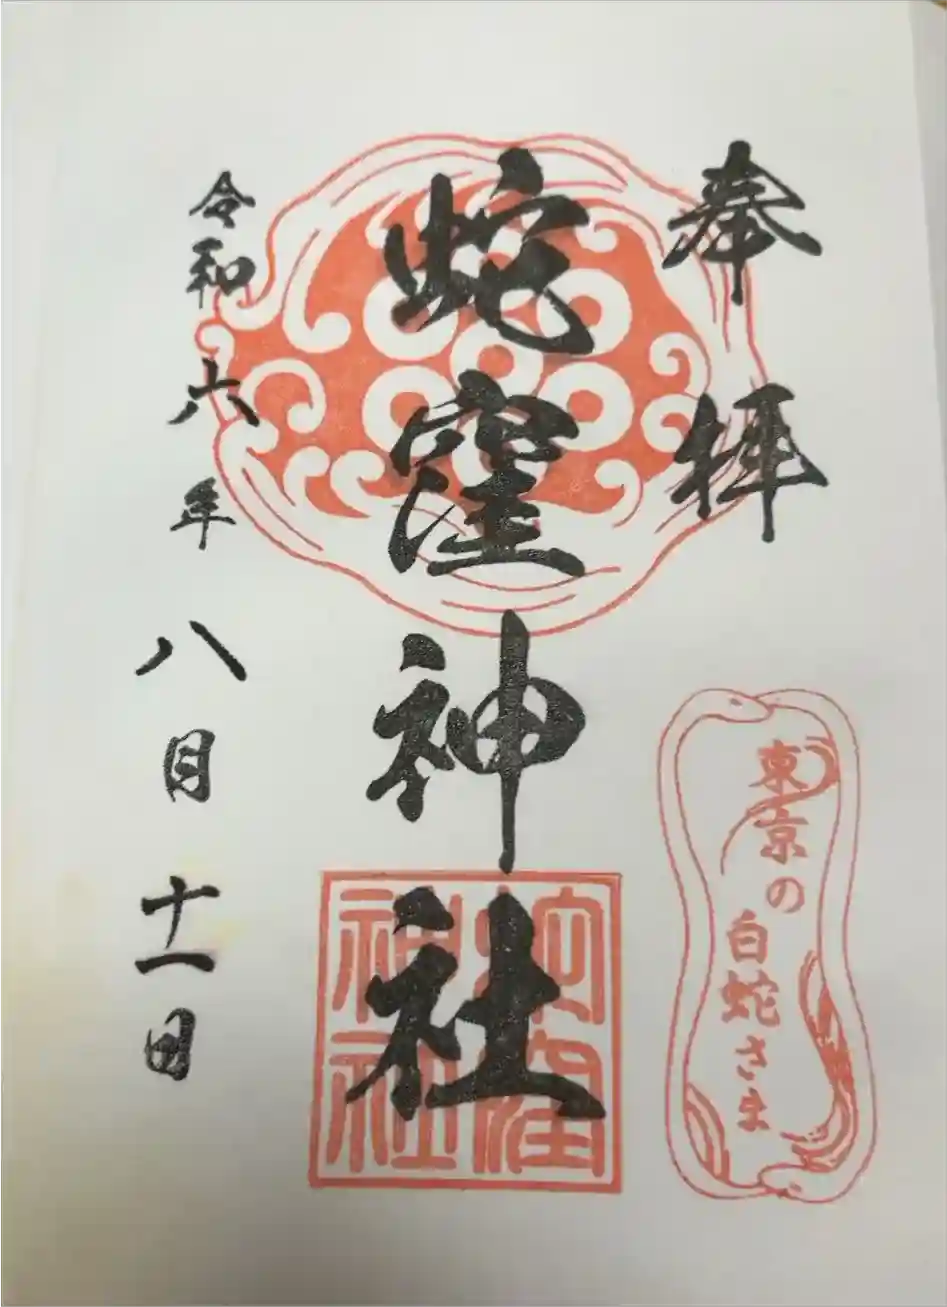 奉拝
蛇窪神社
令和六年八月十一日
東京の
白蛇さま
蛇窪
神社